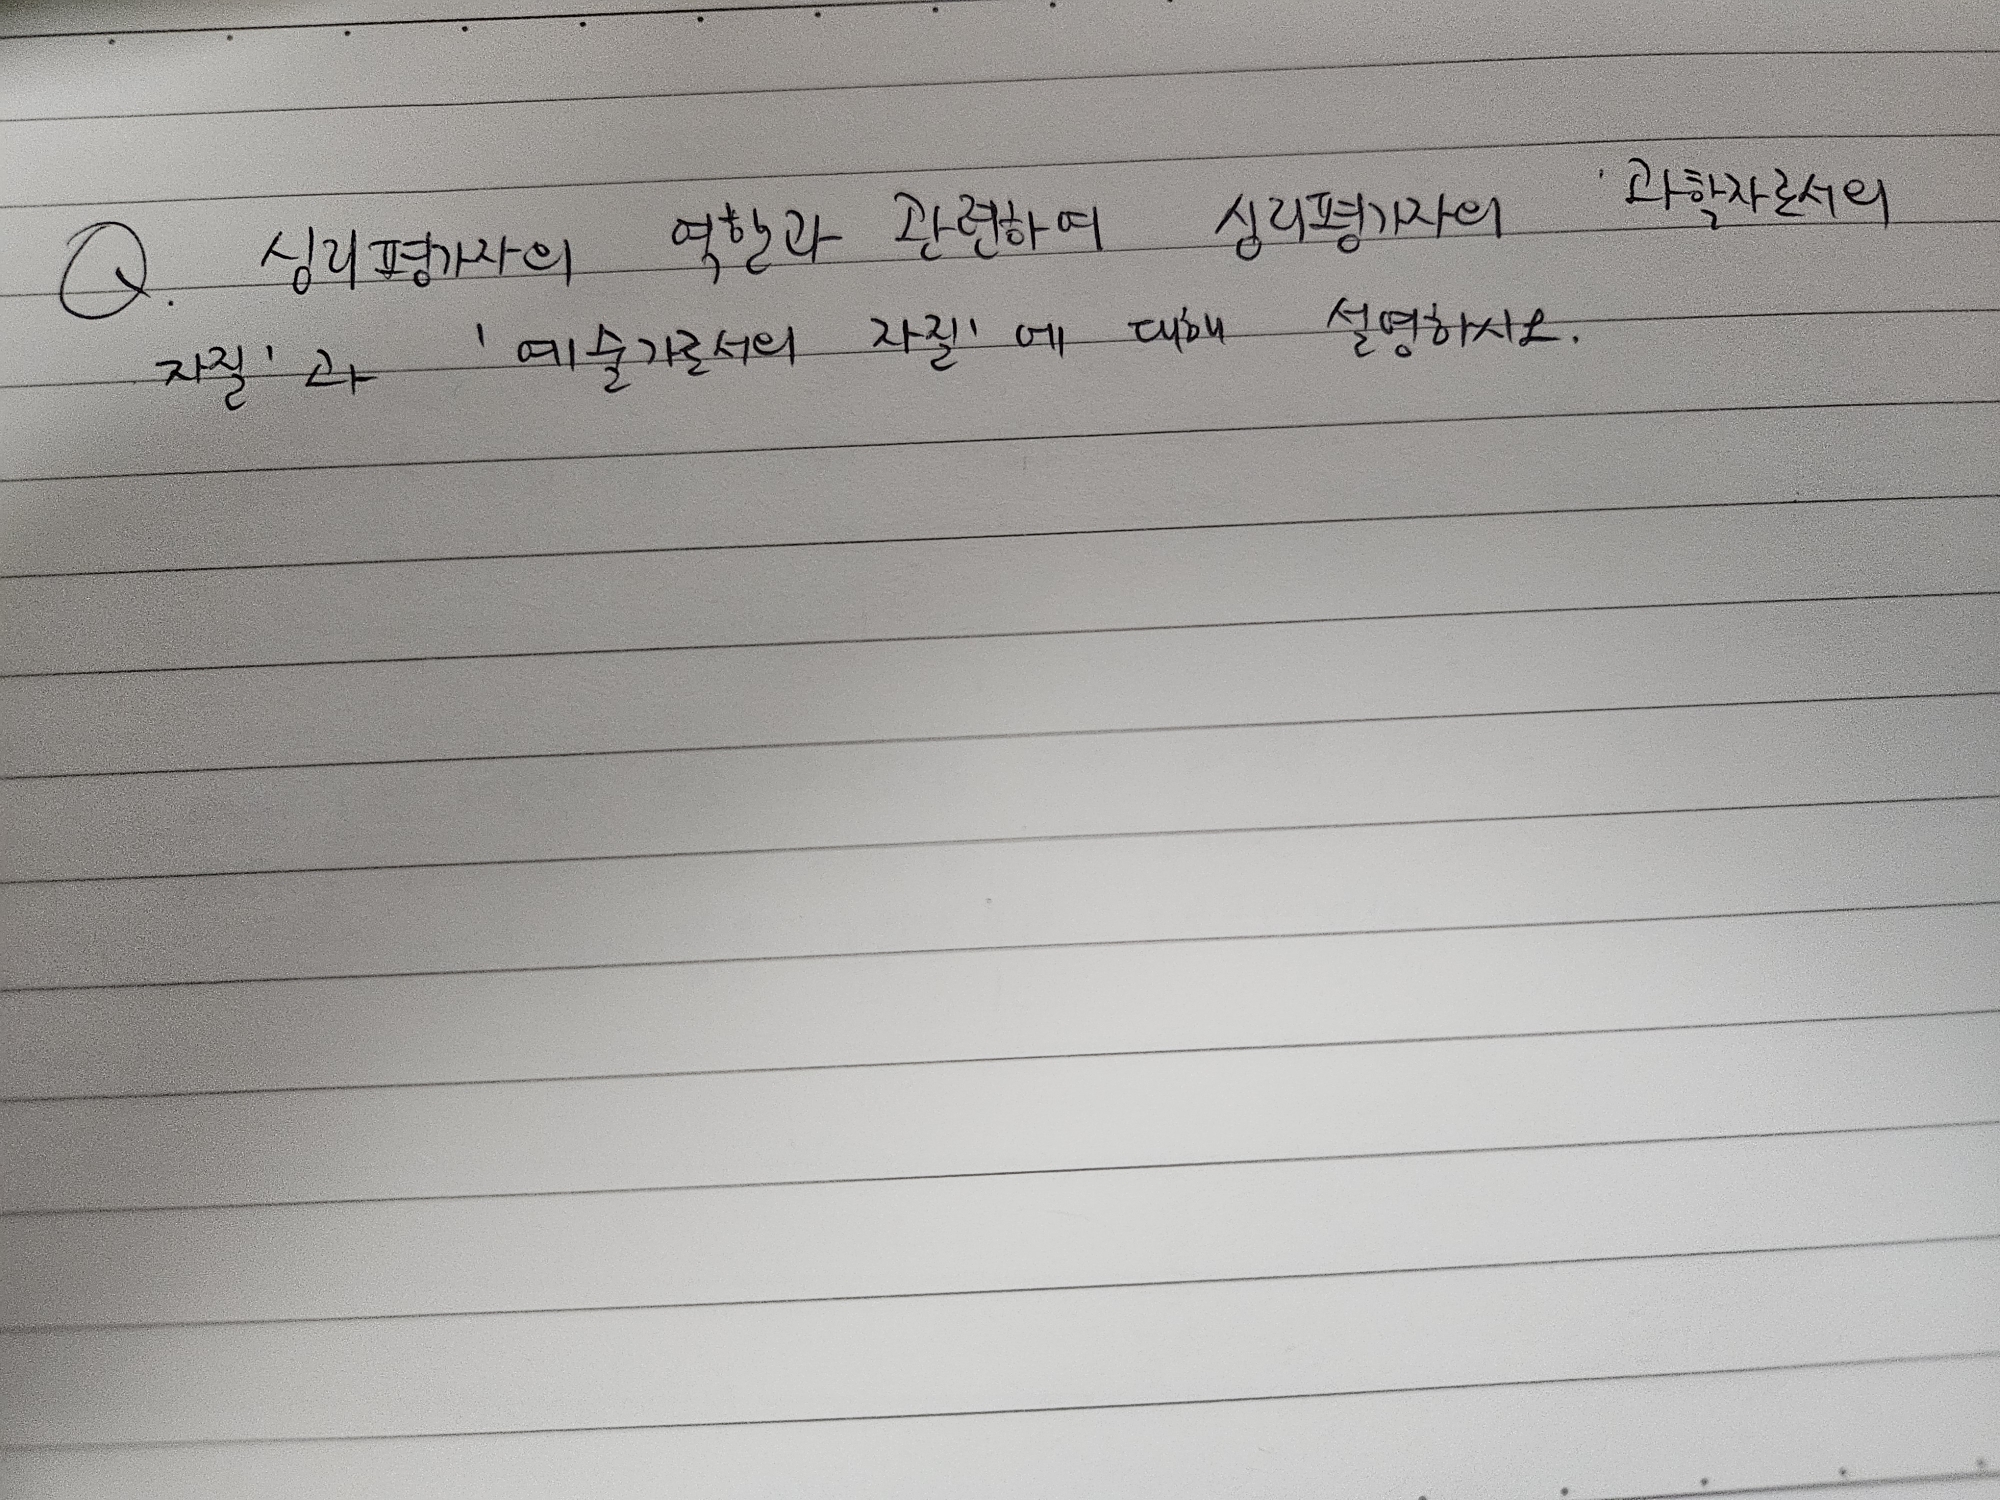 Q. 심리평가자의 역할과 관련하여 심리평가자의 '과학자로서의
자질'과 '예술가로서의 자질'에 대해 설명하시오.